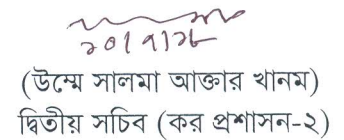 ২০।৭।২৮
(উম্মে সালমা আক্তার খানম)
দ্বিতীয় সচিব (কর প্রশাসন-২)